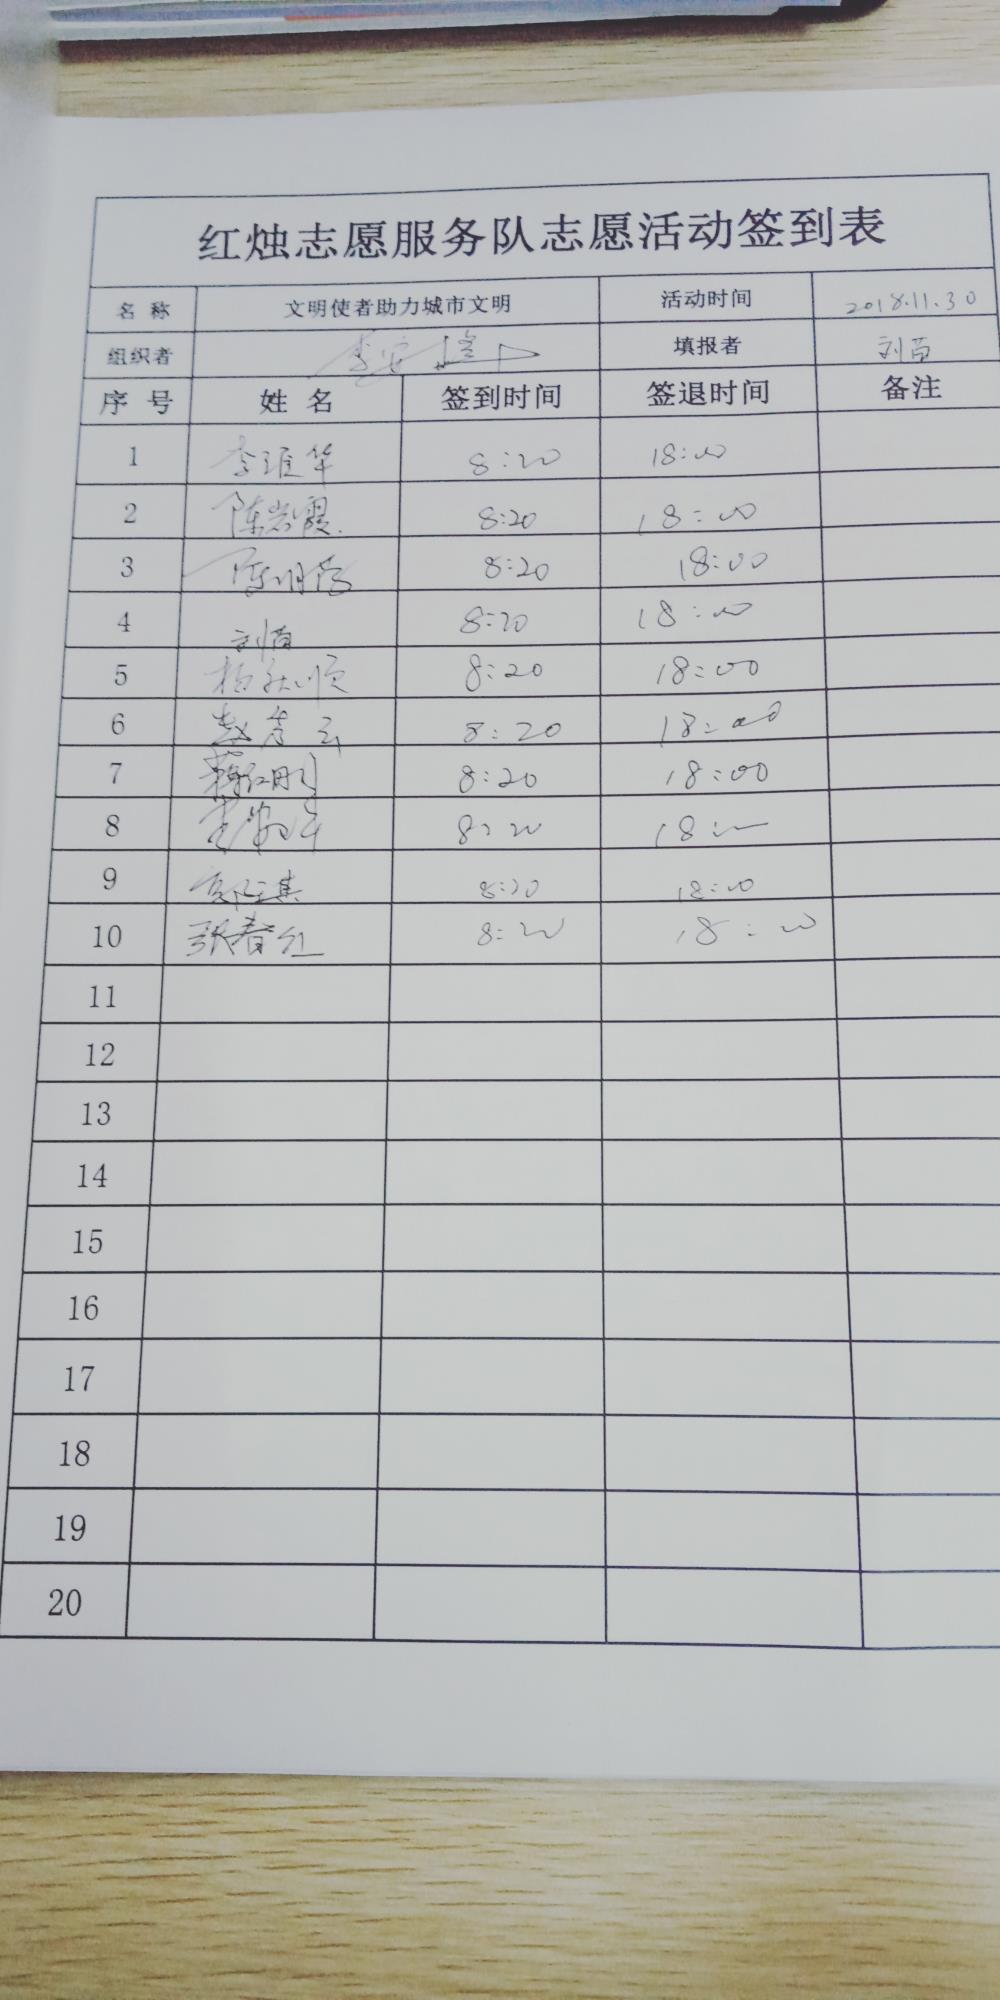 红烛志愿服务队志愿活动签到表
名 称 文明使者助力城市文明 活动时间 2018.11.30
组织者 填报者 刘苗
序 号 姓 名 签到时间 签退时间 备注
1 李维华 8:20 18:00
2 陈岩霞 8:20 18:00
3 8:20 18:00
4 刘苗 8:20 18:00
5 杨秋顺 8:20 18:00
6 赵彦云 8:20 18:00
7 8:20 18:00
8 8:20 18:00
9 8:20 18:00
10 张春红 8:20 18:00
11
12
13
14
15
16
17
18
19
20